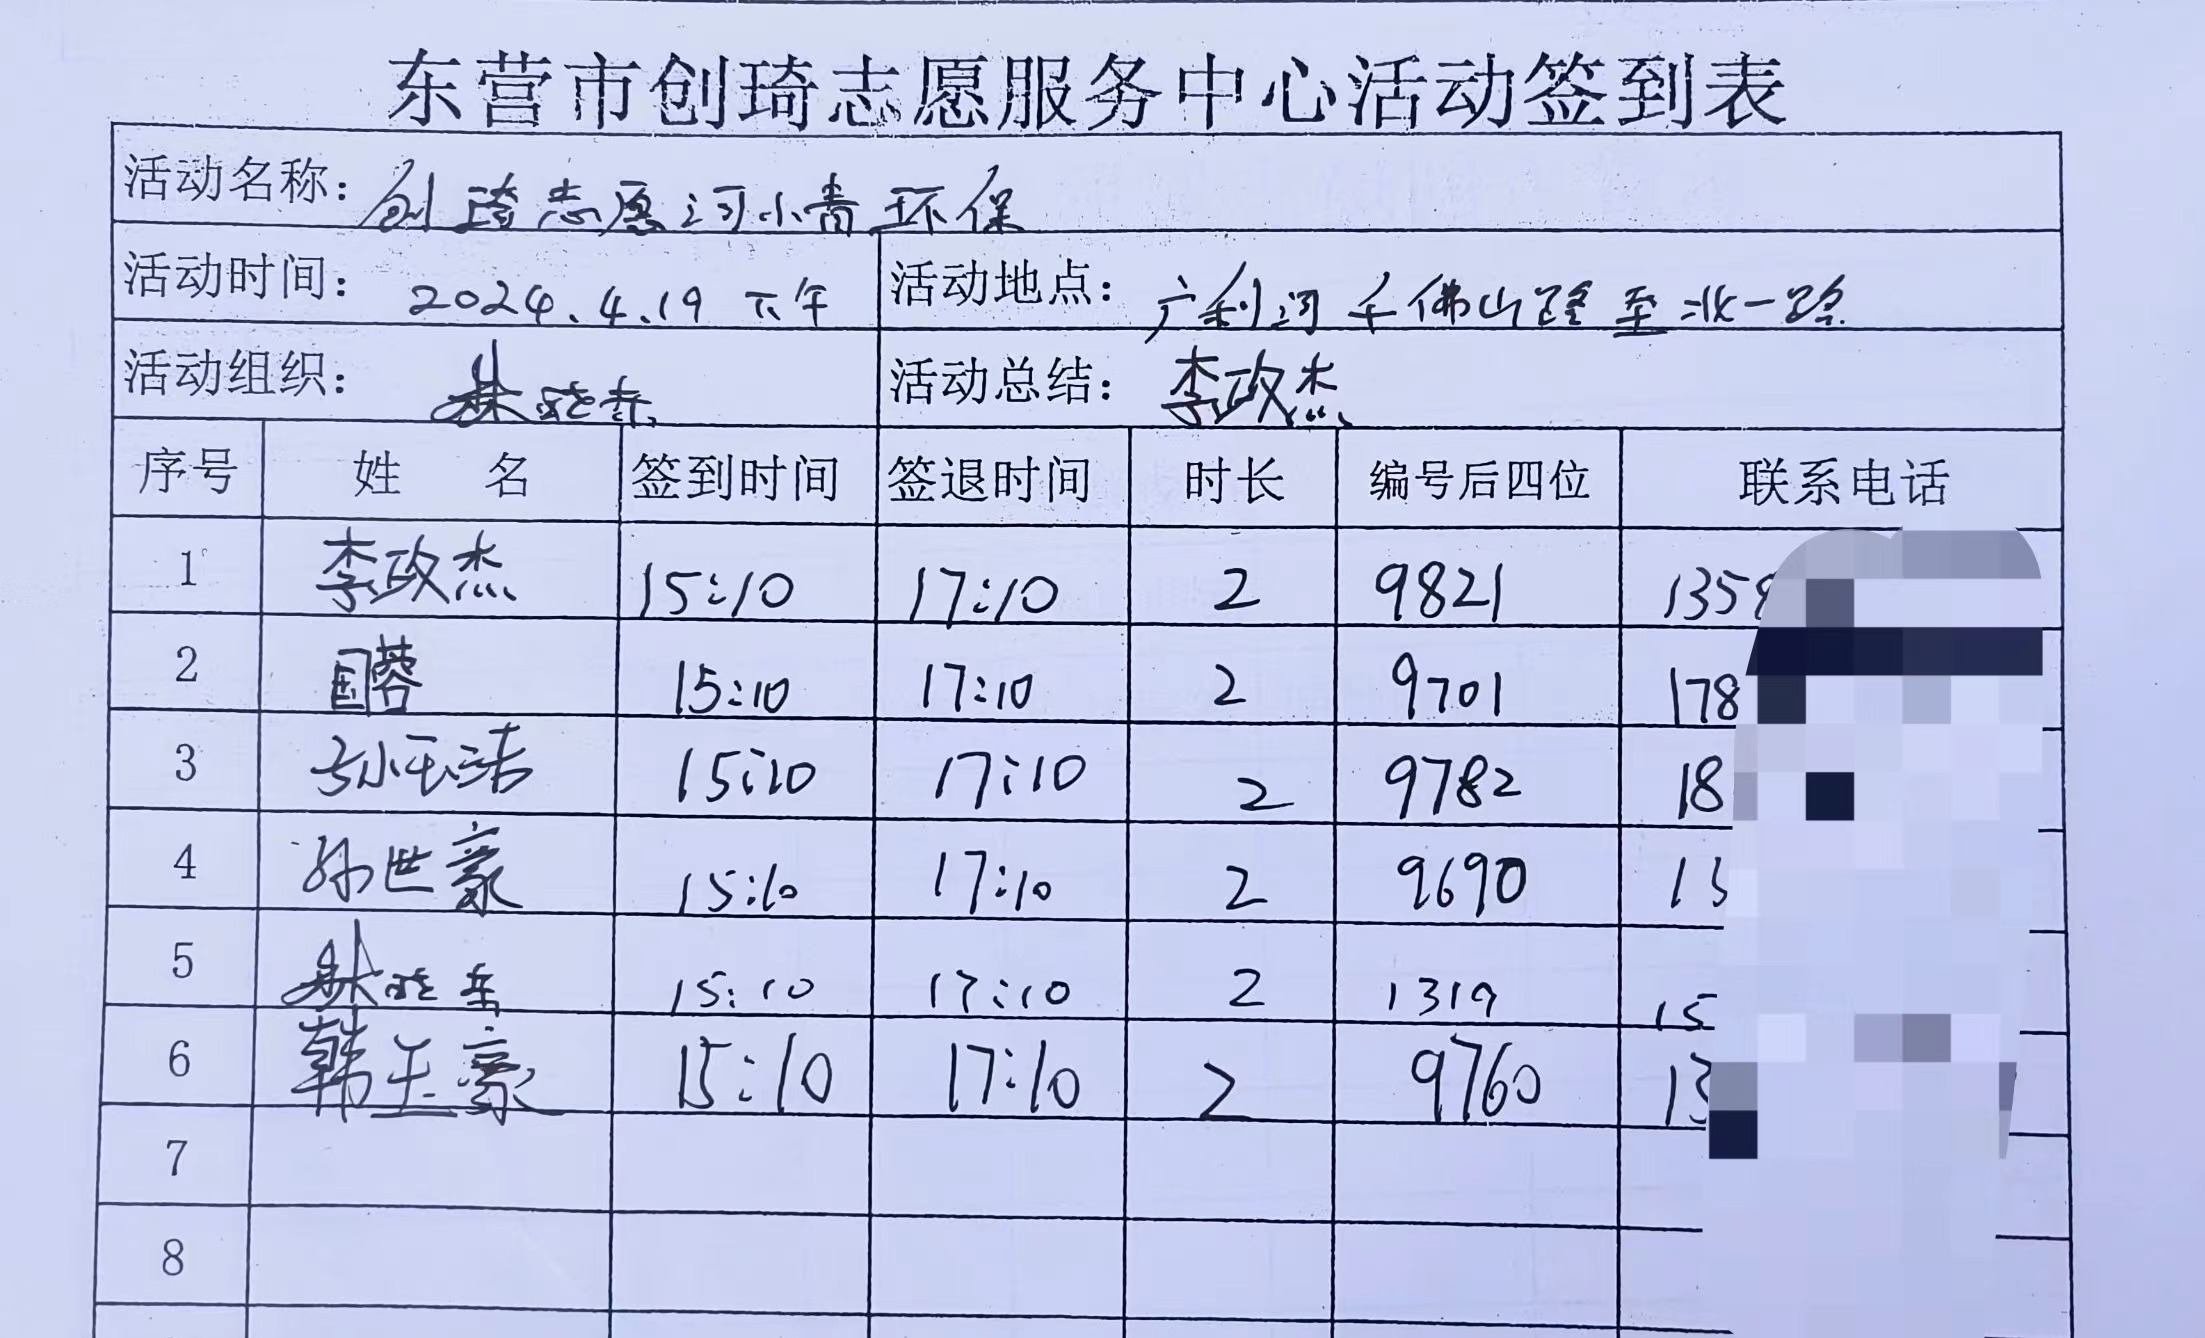 东营市创琦志愿服务中心活动签到表
活动名称：创琦志愿河小青环保
活动时间：2024.4.19 下午 活动地点：广利河千佛山路至北一路
活动组织： 活动总结：李政杰
序号 姓 名 签到时间 签退时间 时长 编号后四位 联系电话
1 李政杰 15:10 17:10 2 9821 135
2 国蓉 15:10 17:10 2 9701 178
3 孙玉洁 15:10 17:10 2 9782 18
4 孙世豪 15:10 17:10 2 9690 13
5 15:10 17:10 2 1319 15
6 韩玉豪 15:10 17:10 2 9760 13
7
8